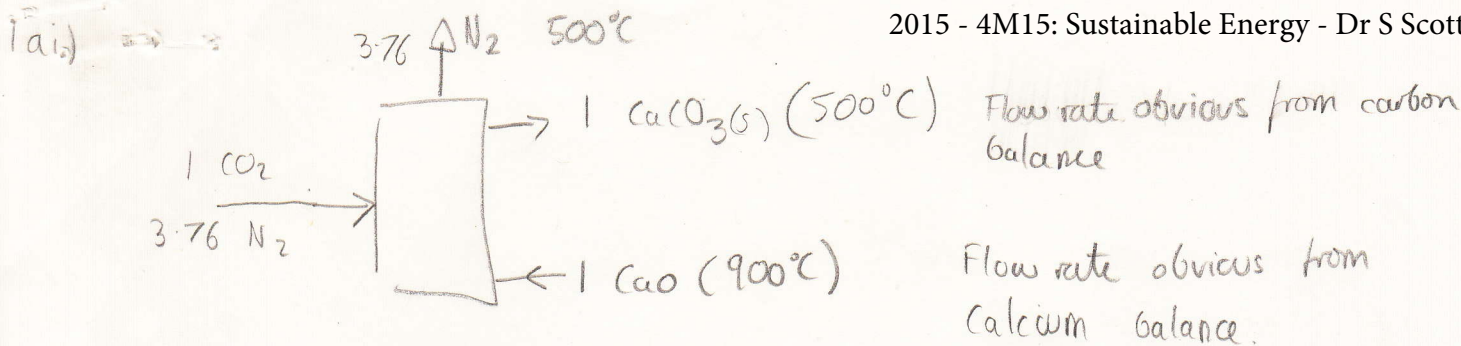 2015 - 4M15: Sustainable Energy - Dr S Scott
1ai.)
3.76 N₂ 500°C
1 CaCO₃(s) (500°C) Flow rate obvious from carbon
balance
1 CO₂
3.76 N₂
1 CaO (900°C) Flow rate obvious from
Calcium balance.